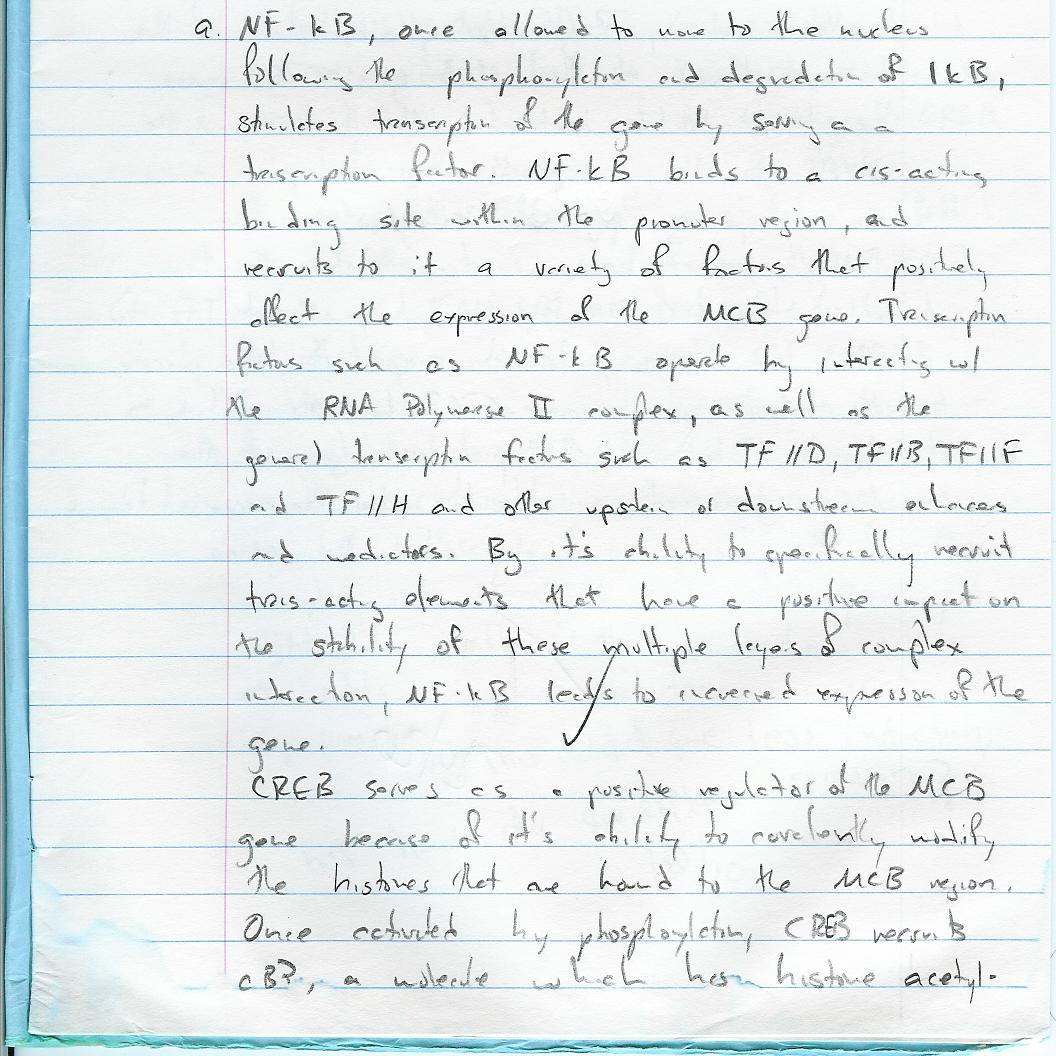 a. NF-kB, once allowed to move to the nucleus
following the phosphorylation and degradation of IkB,
stimulates transcription of the gene by serving as a
transcription factor. NF-kB binds to a cis-acting
binding site within the promoter region, and
recruits to it a variety of factors that positively
affect the expression of the MCB gene. Transcription
factors such as NF-kB operate by interacting w/
the RNA Polymerase II complex, as well as the
general transcription factors such as TFIID, TFIIB, TFIIF
and TFIIH and other upstream or downstream enhancers
and mediators. By it's ability to specifically recruit
trans-acting elements that have a positive impact on
the stability of these multiple layers of complex
interaction, NF-kB leads to increased expression of the
gene.
CREB serves as a positive regulator of the MCB
gene because of it's ability to covalently modify
the histones that are bound to the MCB region.
Once activated by phosphorylation, CREB recruits
CBP, a molecule which has histone acetyl-